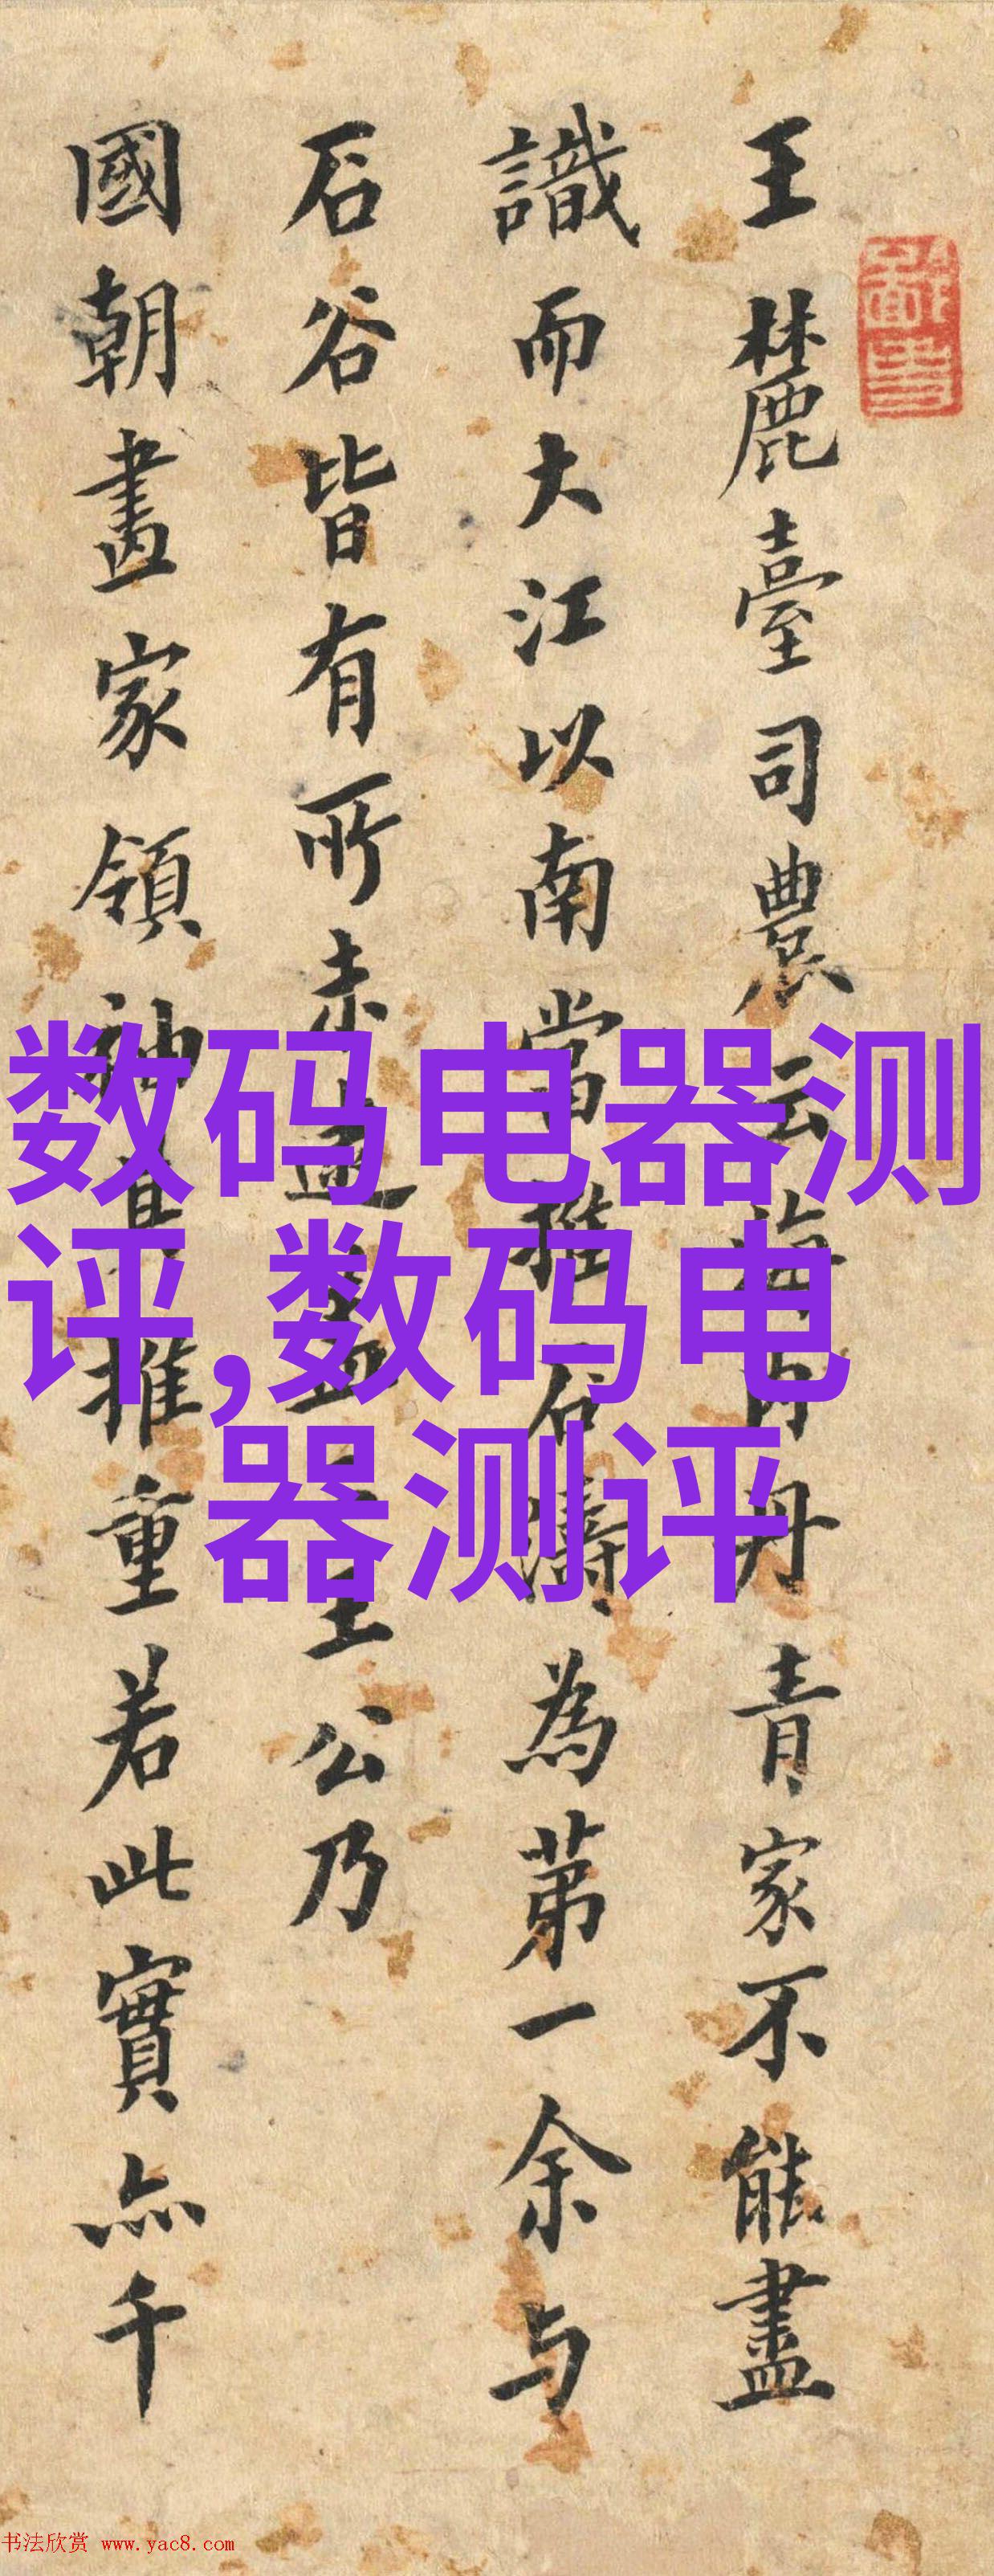 王麓臺司農云海内丹青家不能盡
識而大江以南當推石濤為第一余与
石谷皆有所未逮盖王公乃
國朝畫家領袖其推重若此實亦千
数码电器测
评,数码电
器测评
书法欣赏 www.yac8.com